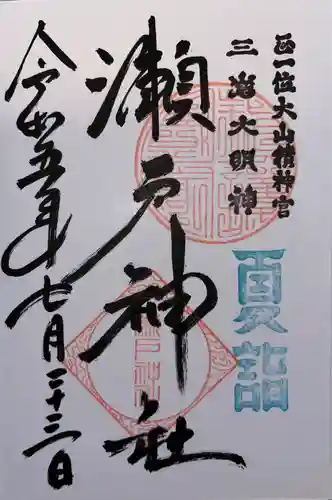 正一位大山積神宮
三嶌大明神
夏詣
瀬戸神社
令和五年七月二十三日